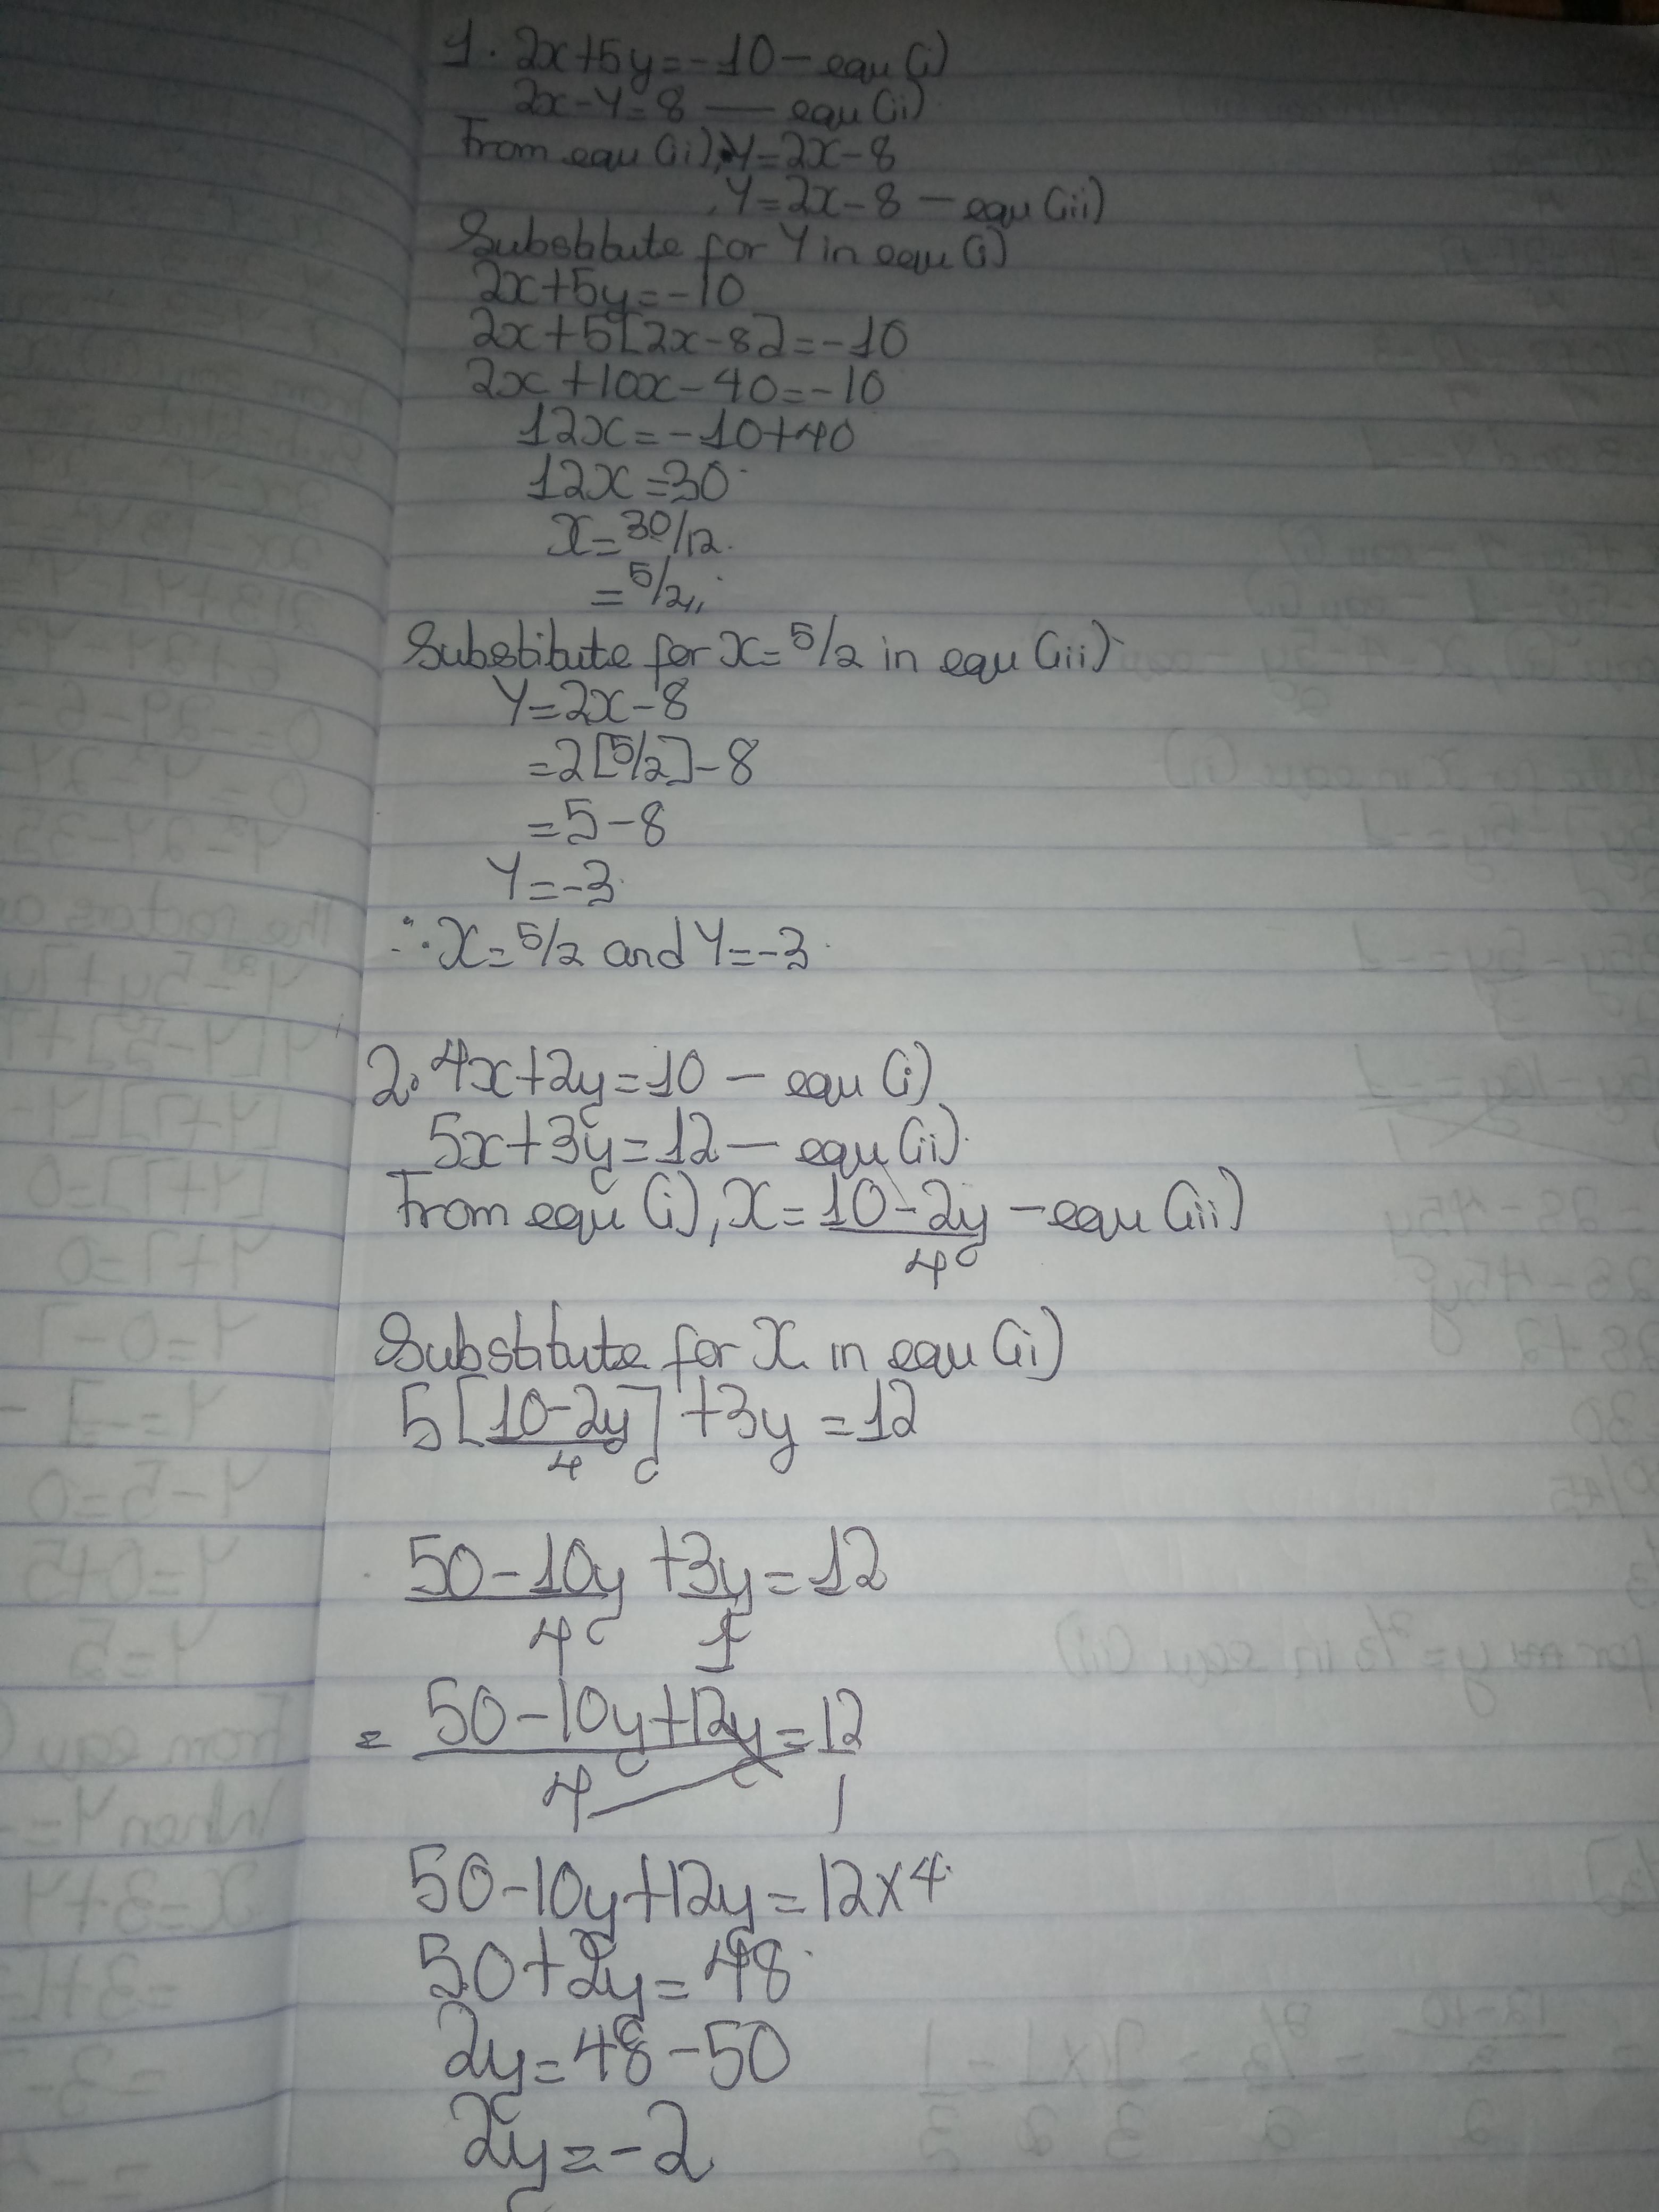 1. 2x+5y=-10 - equ (i)
2x-Y=8 — equ (ii)
From equ (ii), Y=2x-8
Y=2x-8 - equ (iii)
Substitute for Y in equ (i)
2x+5y=-10
2x+5[2x-8]=-10
2x+10x-40=-10
12x=-10+40
12x=30
x=30/12
=5/2,,
Substitute for x=5/2 in equ (iii)
Y=2x-8
=2[5/2]-8
=5-8
Y=-3
∴ x=5/2 and Y=-3
2. 4x+2y=10 - equ (i)
5x+3y=12 - equ (ii)
From equ (i), x=10-2y - equ (iii)
4
Substitute for x in equ (ii)
5[10-2y] +3y=12
4
50-10y +3y=12
4 1
= 50-10y+12y=12
4 1
50-10y+12y=12x4
50+2y=48
2y=48-50
2y=-2